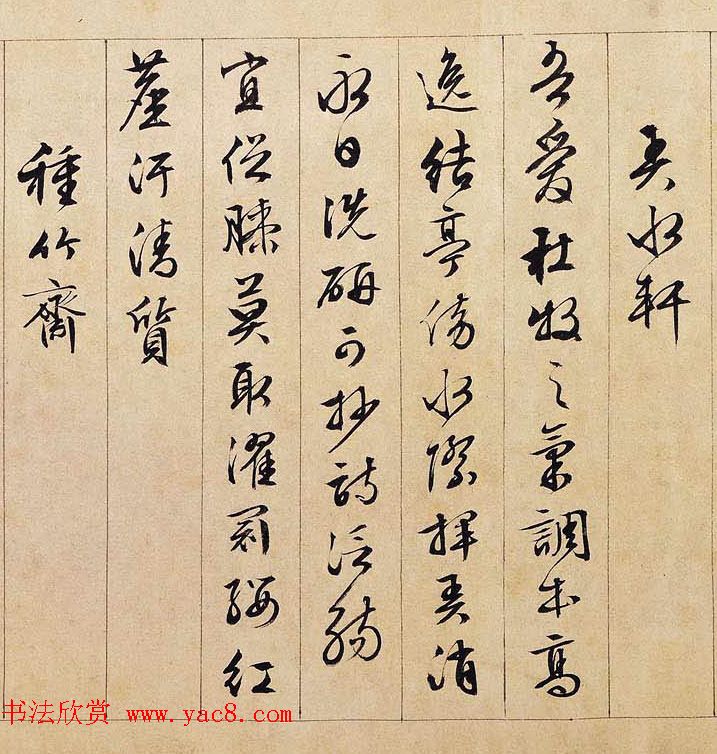 弄水軒
吾愛杜牧之氣調本高
逸結亭傍水際揮弄消
永日洗硏可抄詩泛觴
宜促膝莫取濯冠纓紅
塵汙清質
種竹齋
书法欣赏 www.yac8.com